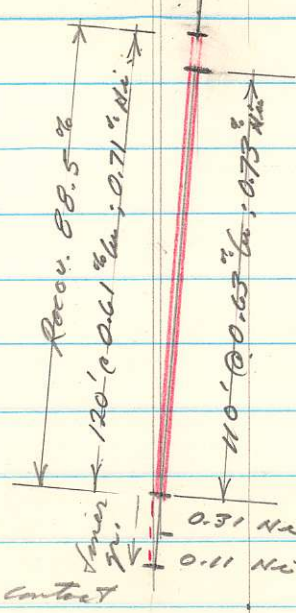 Recov. 88.5%
120' @ 0.61 % Cu ; 0.71 % Ni
110' @ 0.63 % Cu ; 0.73 % Ni
0.31 Ni
gr.
0.11 Ni
contact